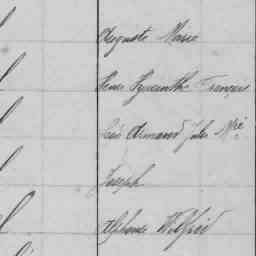 Auguste Marie
Hyacinthe François
Armand Jules Mie
Joseph
Alphonse Wilfrid